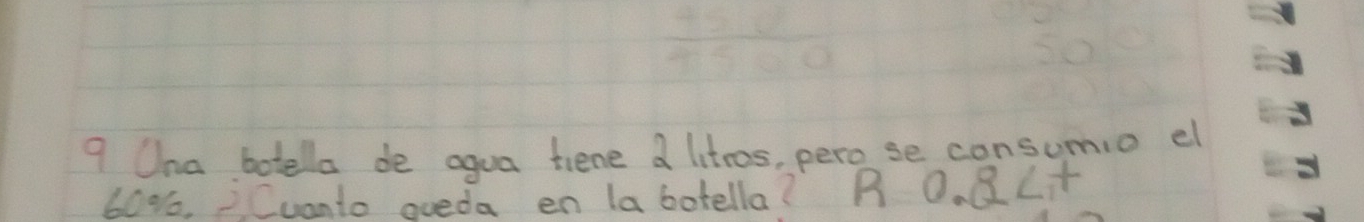 9 Una botella de agua tiene 2 litros, pero se consumio el
60%. ¿Cuanto queda en la botella? R 0.8 Lit